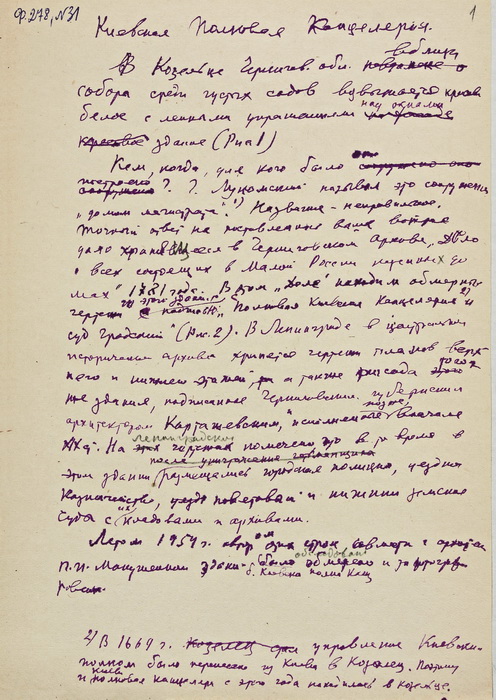 Ф. 278, N31
1
Киевская Полковая Канцелярия.
В Козельце Чернигов. обл. вблизи
собора среди густых садов возвышается
белое с лепными украшениями над окнами
здание (Рис 1)
Кем, когда, для кого было оно
построено? Г. Лукомский называл это сооружение
"домом магистрата" 1) Название - неправильное.
Точный ответ на поставленные выше вопросы
дало хранившееся в Черниговском Архиве "Дело
о всех состоящих в Малой России казенных до
мах" 1781 года. В этом "Деле" находим обмерные
чертежи этого здания с надписью "Полковая Киевская Канцелярия 2) и
суд градский" (Рис. 2). В Ленинграде в Центральном
историческом архиве хранятся чертежи планов верх
него и нижнего этажей, а также фасада того
же здания, подписанные Черниговским губернским
архитектором Карташевским, исполненные позже, вначале
XIX в. На ленинградском чертеже помечено, что в то время в
этом здании размещались городская полиция, уездное
казначейство, суд поветовый и нижний земские
суды с их кладовыми и архивами.
Летом 1954 г. автор этих строк совместно с архитек
П. И. Макушенко было обследовано
обмерено и сфотографи
ровано.
2) В 1669 г. управление Киевским
полком было перенесено из Киева в Козелец. Поэтому
и Киев. полковая канцеляр с этого года находилась в Козельце.